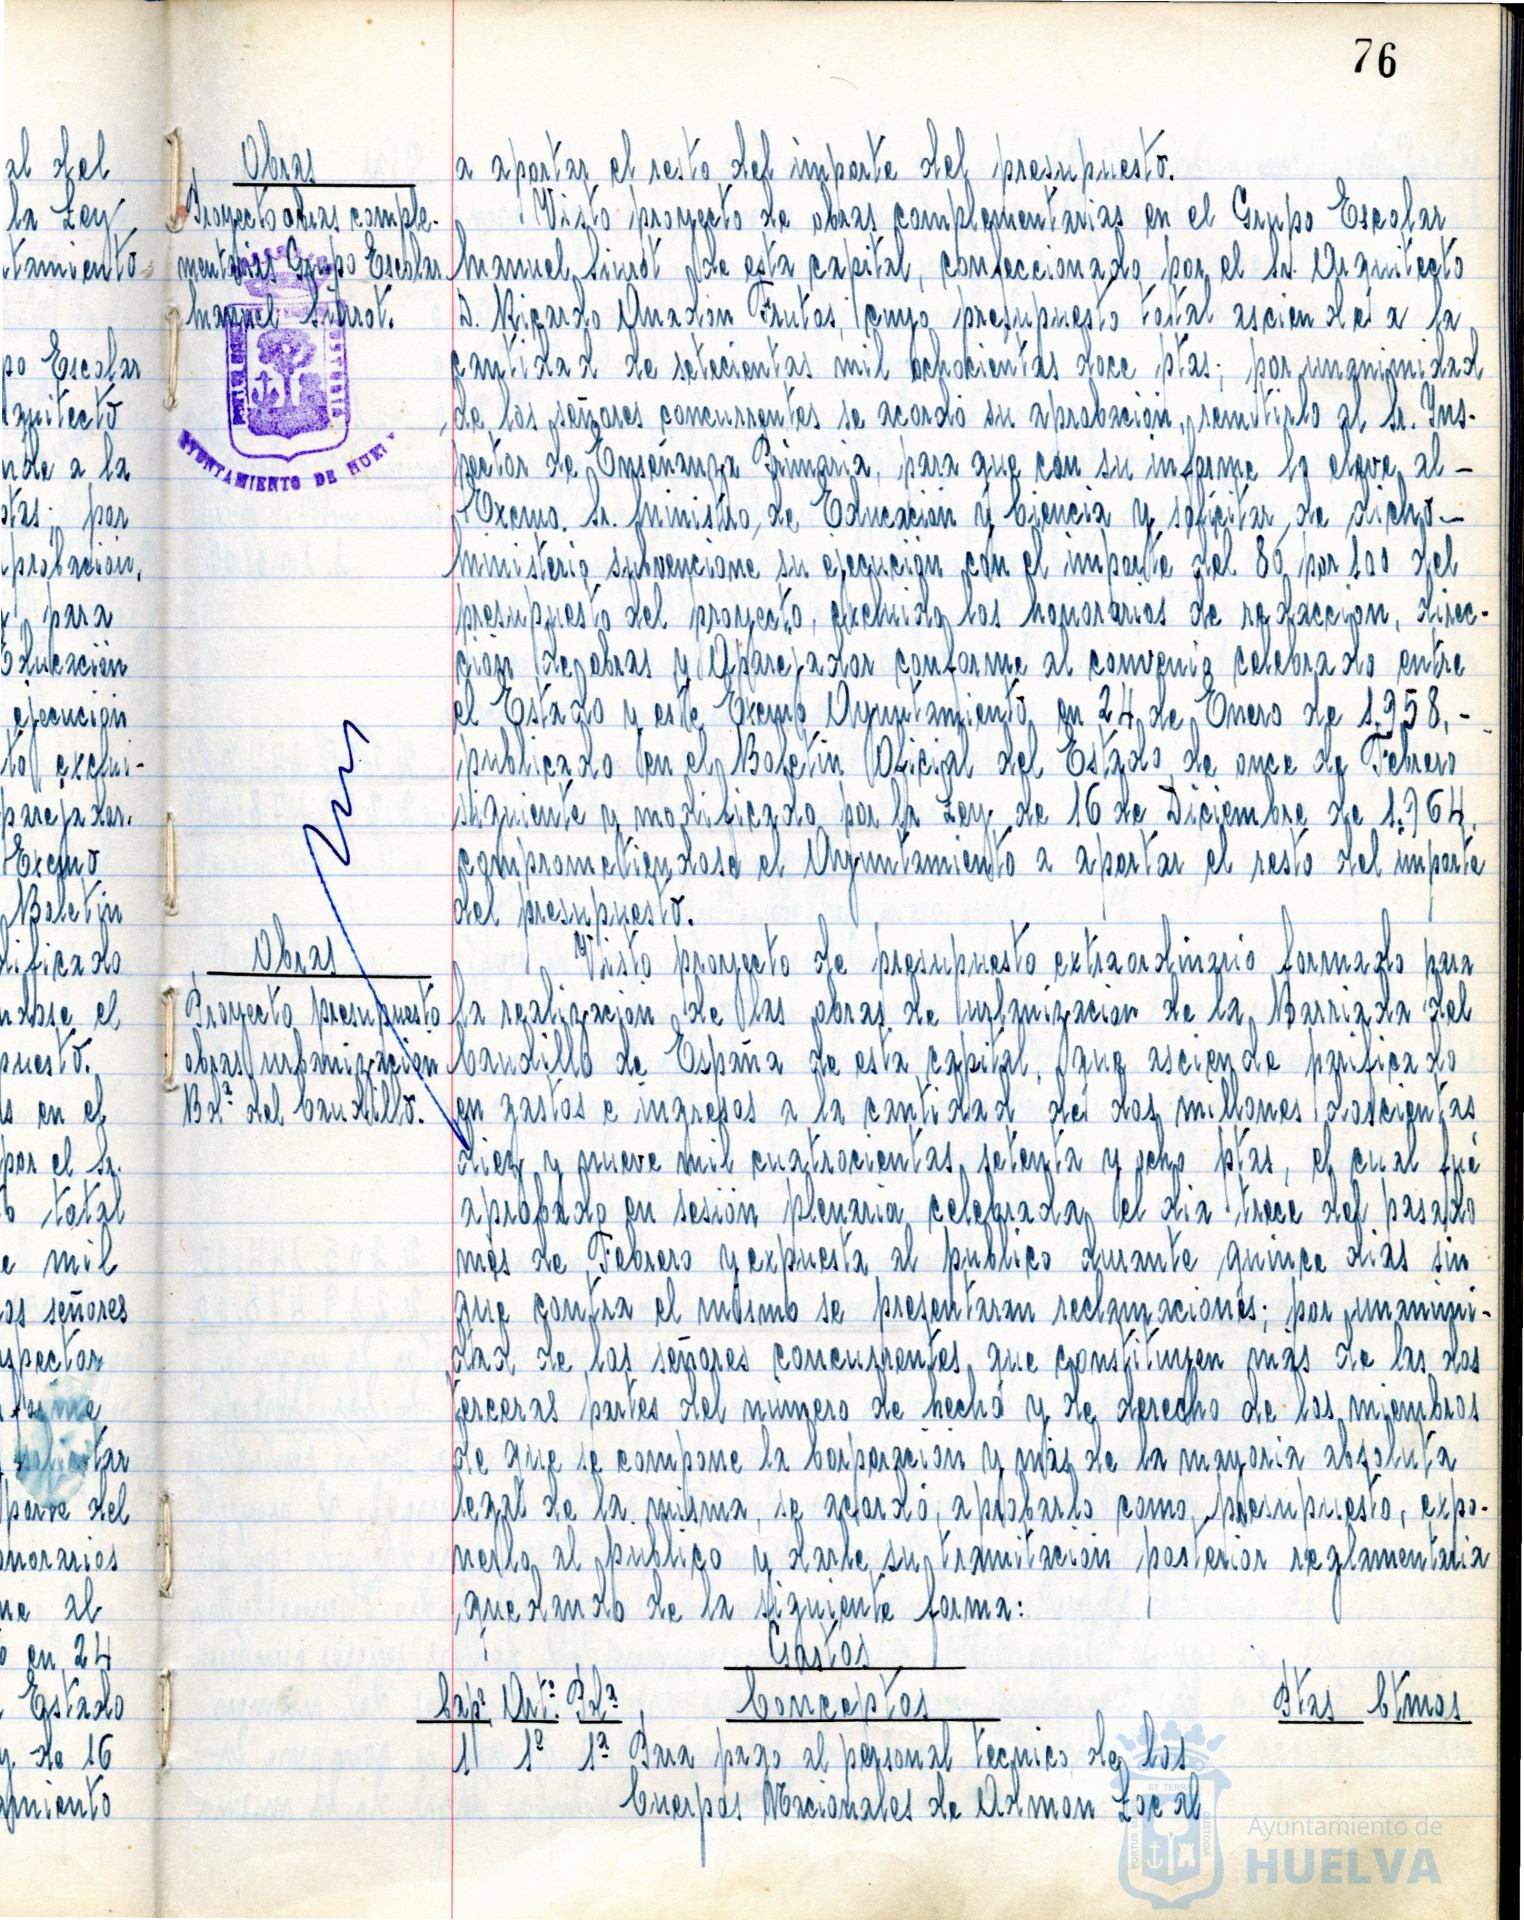 76
al del
la Ley
tamiento
po Escolar
quitecto
nde a la
ptas; por
probación,
y para
Educación
ejecución
to exclui-
parejador.
Excmo
Boletín
dificado
ndose el
puesto.
s en el
por el Sr.
o total
e mil
os señores
spector
forme
tar
porte del
onorarios
me al
o en 24
Estado
y de 16
amiento
Obras
Proyecto obras comple-
mentarias Grupo Escolar
Manuel Siurot.
AYUNTAMIENTO DE HUELVA
Obras
Proyecto presupuesto
obras urbanización
Bda. del Caudillo.
a aportar el resto del importe del presupuesto.
Visto proyecto de obras complementarias en el Grupo Escolar
Manuel Siurot de esta capital, confeccionado por el Sr. Arquitecto
D. Ricardo Anadón Frutos, cuyo presupuesto total asciende a la
cantidad de setecientas mil ochocientas doce ptas; por unanimidad
de los señores concurrentes se acordó su aprobación, remitirlo al Sr. Ins-
pector de Enseñanza Primaria, para que con su informe lo eleve al -
Excmo. Sr. Ministro de Educación y Ciencia y solicitar de dicho -
Ministerio subvencione su ejecución con el importe del 80 por 100 del
presupuesto del proyecto, excluido los honorarios de redacción, direc-
ción de obras y Aparejador conforme al convenio celebrado entre
el Estado y este Excmo Ayuntamiento en 24 de Enero de 1.958, -
publicado en el Boletín Oficial del Estado de once de Febrero
siguiente y modificado por la Ley de 16 de Diciembre de 1.964,
comprometiendose el Ayuntamiento a aportar el resto del importe
del presupuesto.
Visto proyecto de presupuesto extraordinario formado para
la realización de las obras de urbanización de la Barriada del
Caudillo de España de esta capital, que asciende parificado
en gastos e ingresos a la cantidad de dos millones doscientas
diez y nueve mil cuatrocientas setenta y ocho ptas, el cual fué
aprobado en sesión plenaria celebrada el dia trece del pasado
mes de Febrero y expuesta al publico durante quince dias sin
que contra el mismo se presentaran reclamaciones; por unanimi-
dad de los señores concurrentes, que constituyen más de las dos
terceras partes del numero de hecho y de derecho de los miembros
de que se compone la Corporación y más de la mayoria absoluta
legal de la misma, se acordó, aprobarlo como presupuesto, expo-
nerlo al publico y darle su tramitación posterior reglamentaria
quedando de la siguiente forma:
Gastos
Capº. Artº. Pdª Conceptos Ptas Ctmos
1 1º 1ª Para pago al personal tecnico de los
Cuerpos Nacionales de Admon Local
ET TERRA
PORTUS MARIS
CUSTODIA
Ayuntamiento de
HUELVA